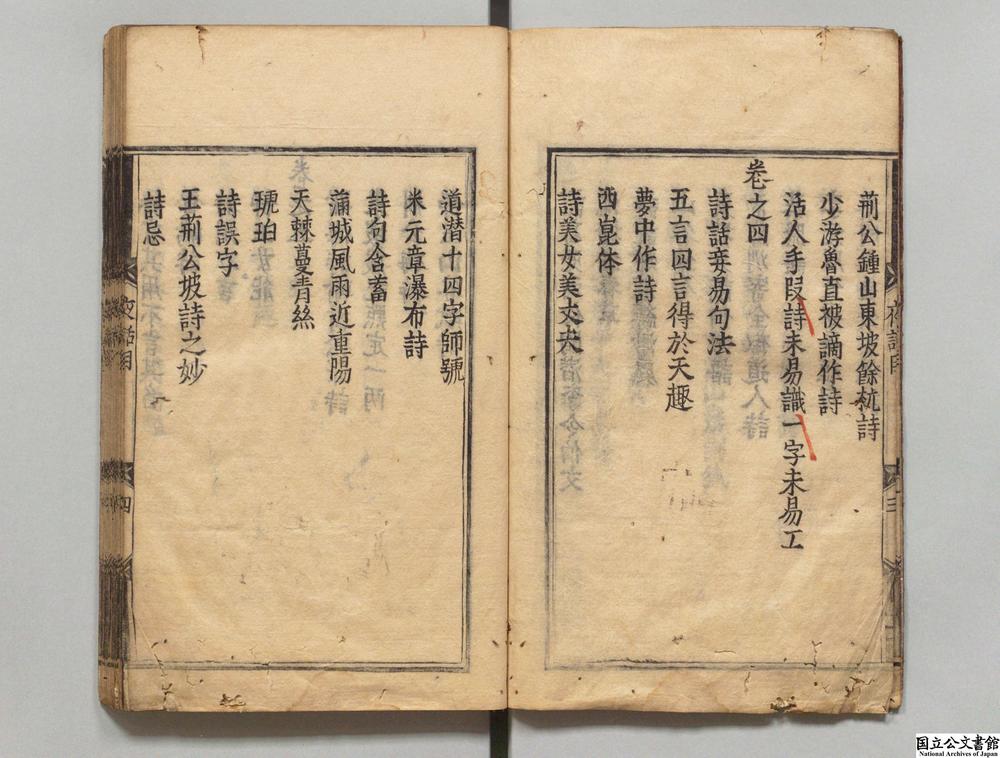 荊公鍾山東坡餘杭詩
少游魯直被謫作詩
活人手段詩未易識一字未易工
卷之四
詩話妄易句法
五言四言得於天趣
夢中作詩
西崑体
詩美女美丈夫
道潛十四字師號
米元章瀑布詩
詩句含蓄
蒲城風雨近重陽
天棘蔓青絲
琥珀
詩誤字
王荊公坡詩之妙
詩忌
夜話目
四
国立公文書館
National Archives of Japan